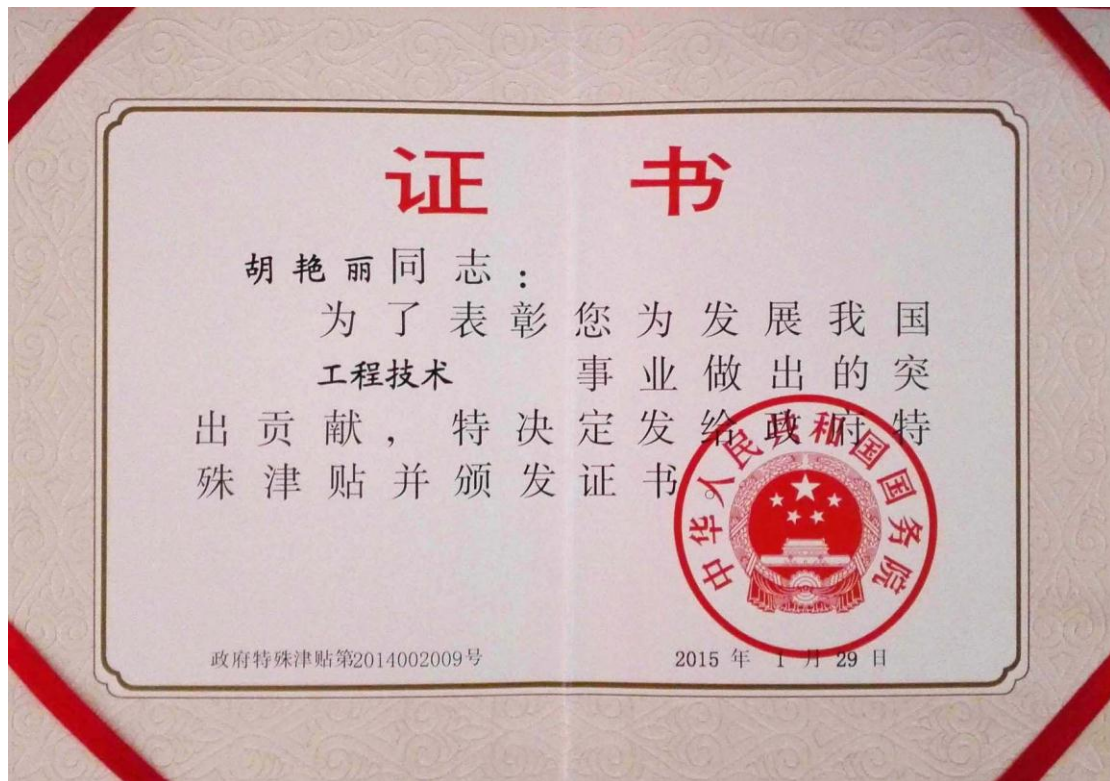 证 书
胡艳丽同志：
为了表彰您为发展我国
工程技术 事业做出的突
出贡献，特决定发给政府特
殊津贴并颁发证书。
中华人民共和国国务院
政府特殊津贴第2014002009号
2015 年 1 月 29 日